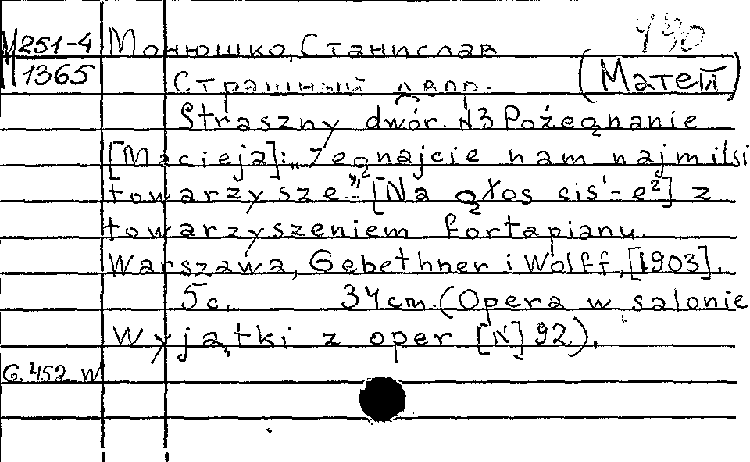 М 251-4 Монюшко, Станислав 490
1365 Страшный двор. (Матей)
Straszny dwór. N3 Pożegnanie
[Macieja]: „Żegnajcie nam najmilsi
towarzysze". [Na głos cis¹-e²] z
towarzyszeniem fortapianu.
Warszawa, Gebethner i Wolff, [1903].
5с. 34cm. (Opera w salonie
Wyjątki z oper [N] 92).
G. 452 W